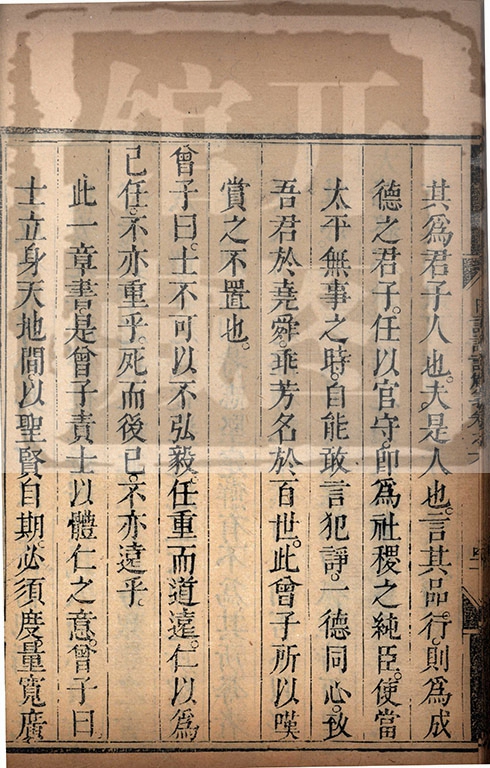 其爲君子人也夫是人也言其品行則爲成
德之君子任以官守卽爲社稷之純臣使當
太平無事之時自能敢言犯諍一德同心致
吾君於堯舜乖芳名於百世此曾子所以嘆
賞之不置也
曾子曰士不可以不弘毅任重而道遠仁以爲
己任不亦重乎死而後已不亦遠乎
此一章書是曾子責士以體仁之意曾子曰
士立身天地間以聖賢自期必須度量寬廣